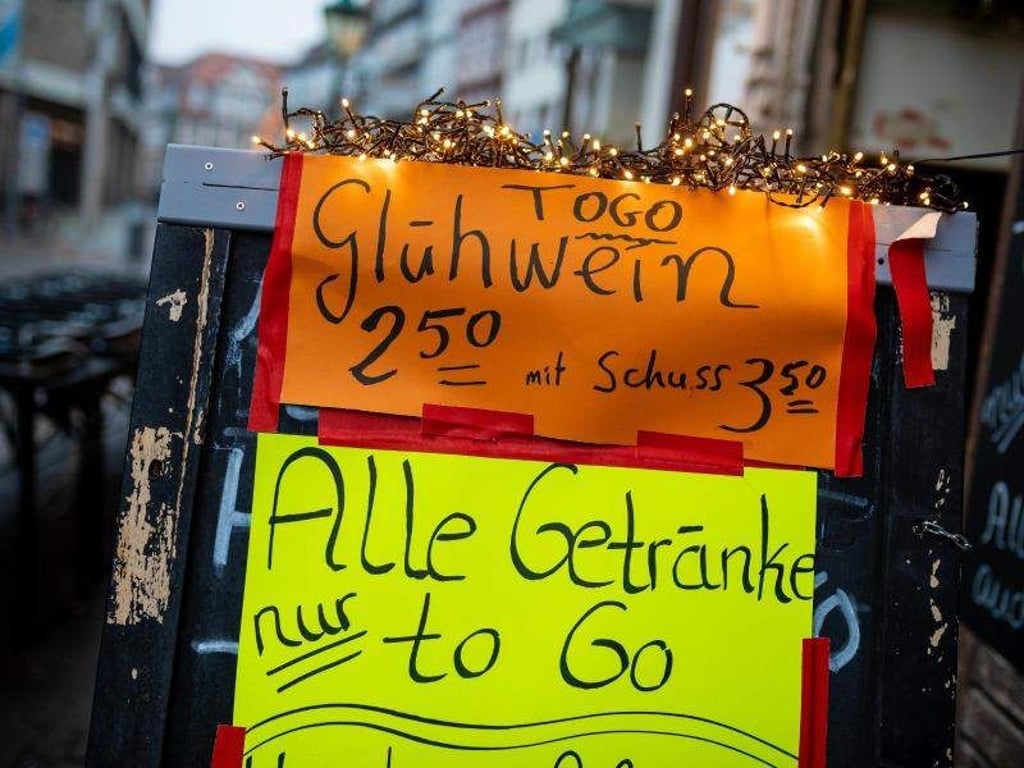 TOGO
Glühwein
2 50 mit Schuss 3 50
Alle Getränke
nur to Go